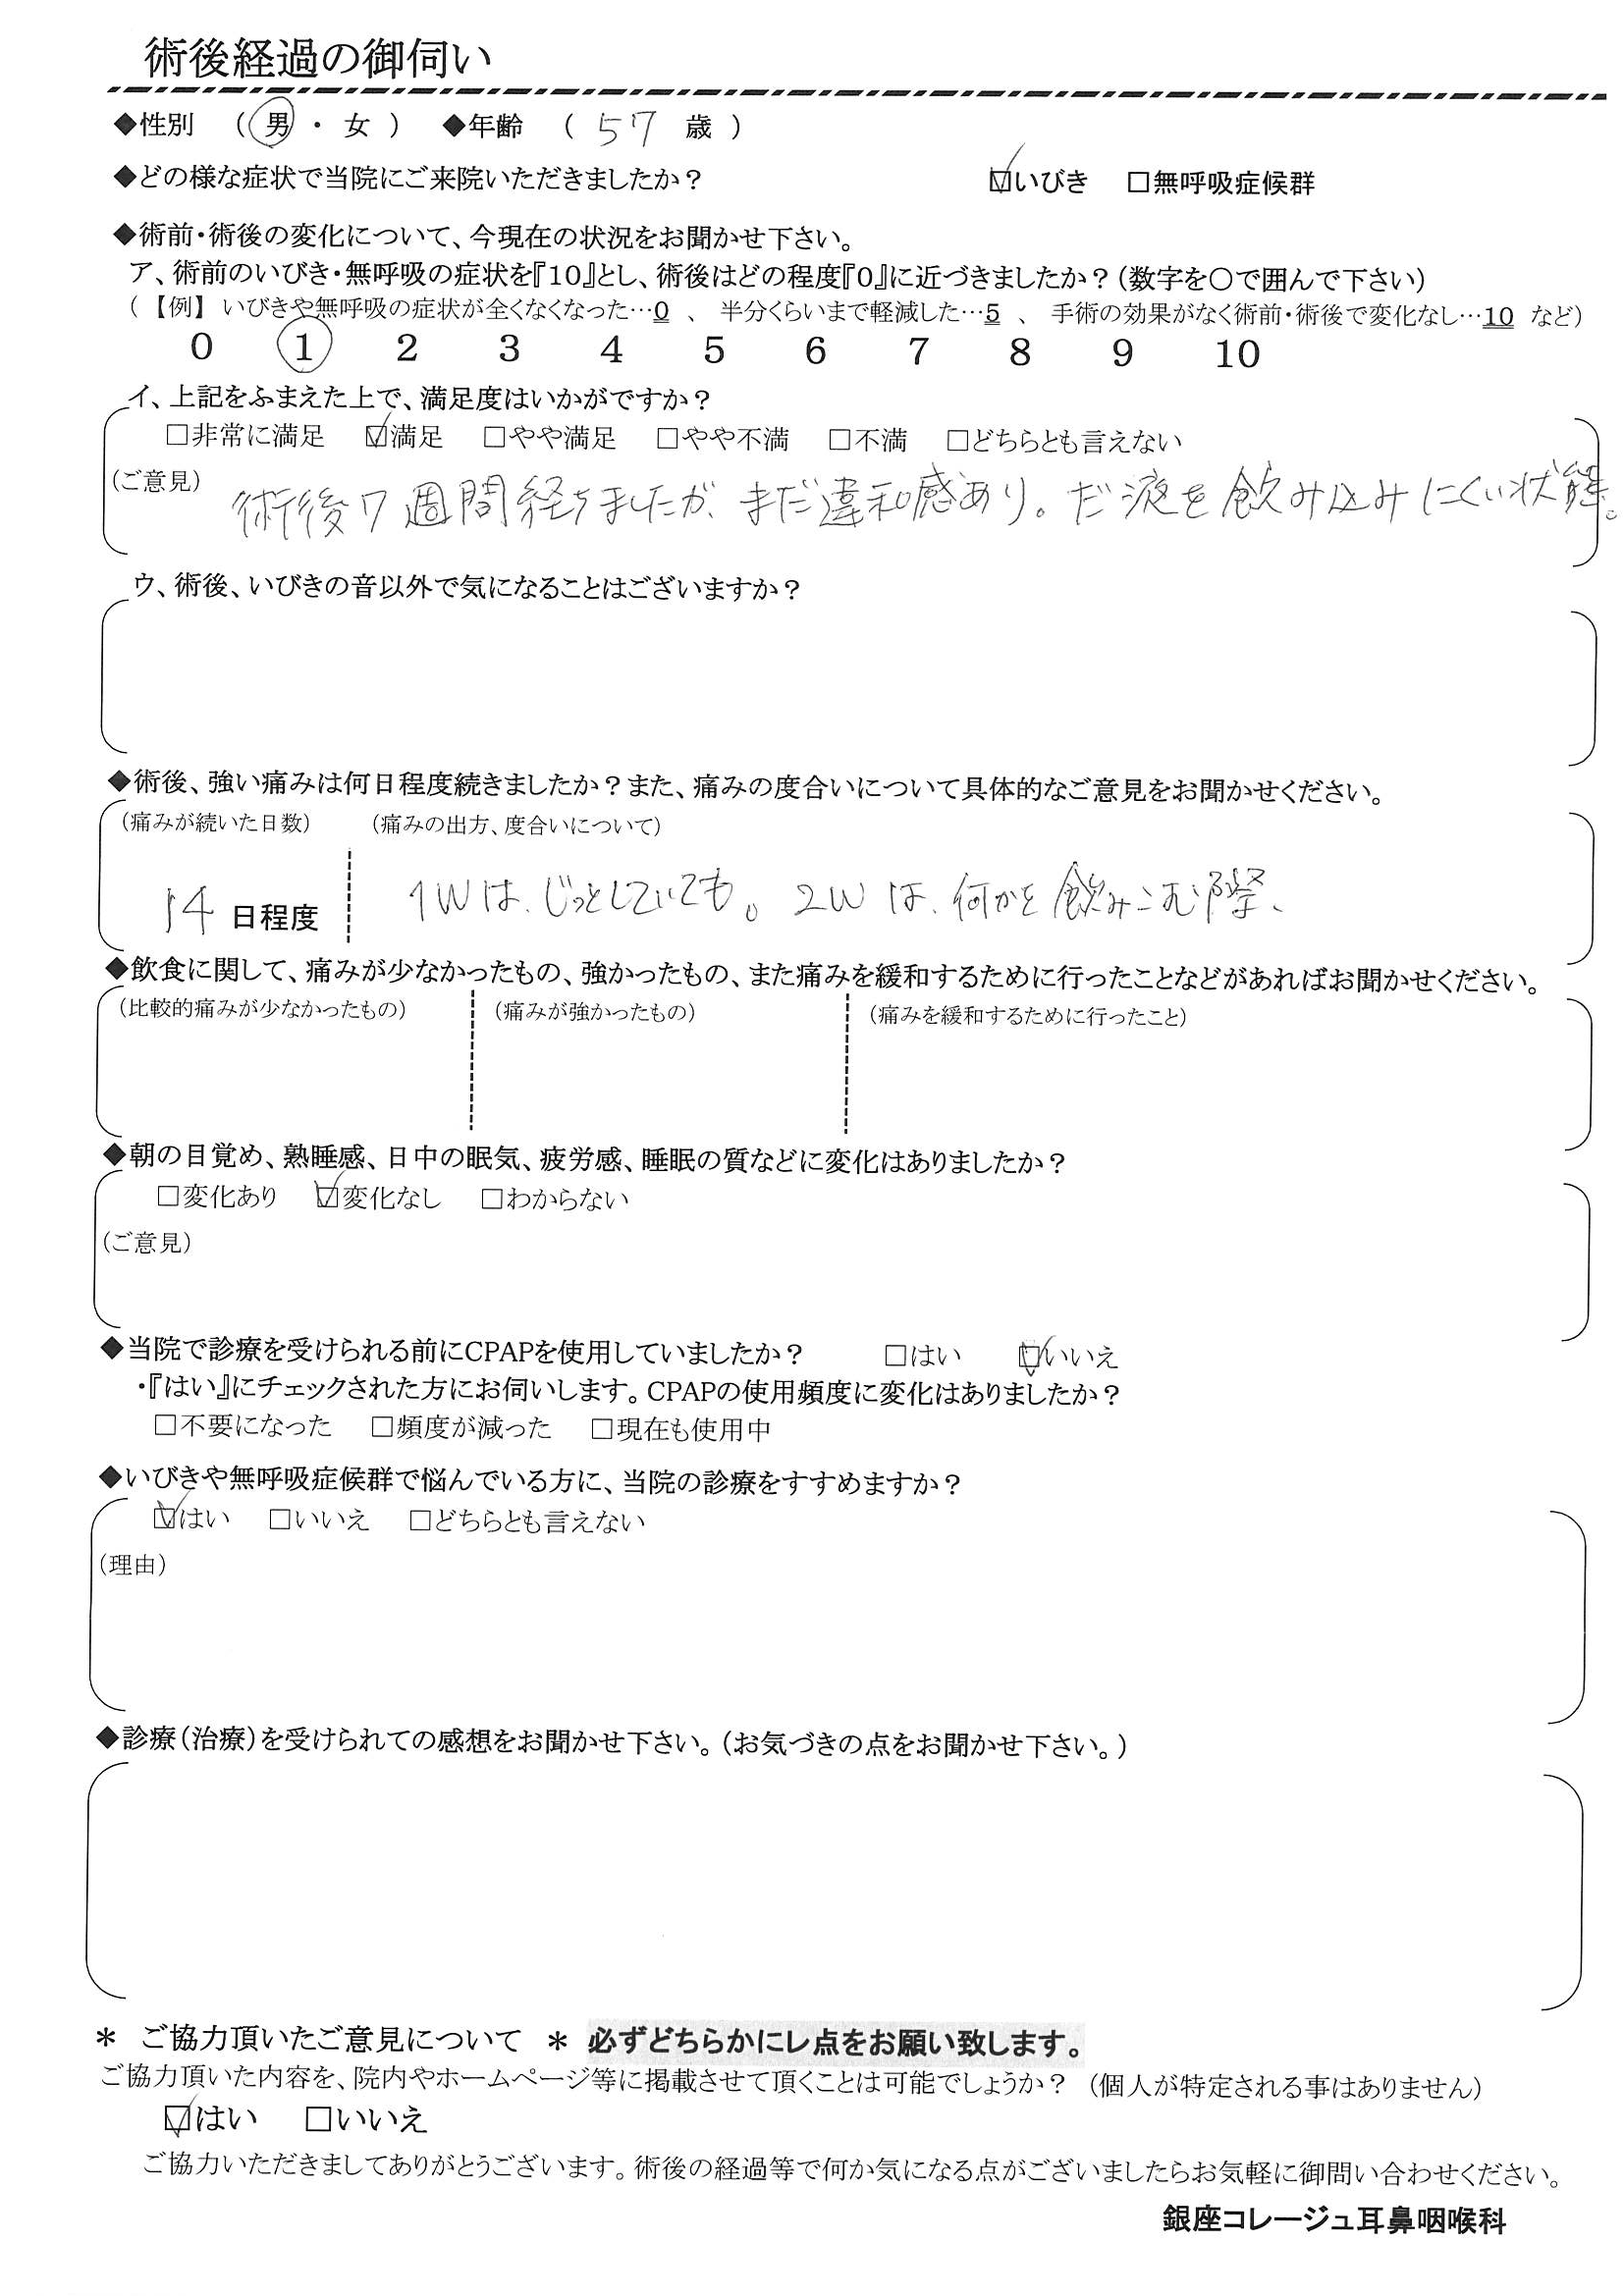 術後経過の御伺い
◆性別 （ 男 ・ 女 ） ◆年齢 （ 57 歳 ）
◆どの様な症状で当院にご来院いただきましたか？ ☑いびき □無呼吸症候群
◆術前・術後の変化について、今現在の状況をお聞かせ下さい。
ア、術前のいびき・無呼吸の症状を『10』とし、術後はどの程度『0』に近づきましたか？（数字を〇で囲んで下さい）
（【例】 いびきや無呼吸の症状が全くなくなった…0 、 半分くらいまで軽減した…5 、 手術の効果がなく術前・術後で変化なし…10 など）
0 1 2 3 4 5 6 7 8 9 10
イ、上記をふまえた上で、満足度はいかがですか？
□非常に満足 ☑満足 □やや満足 □やや不満 □不満 □どちらとも言えない
（ご意見） 術後7週間経ちましたが、まだ違和感あり。だ液を飲み込みにくい状態。
ウ、術後、いびきの音以外で気になることはございますか？
◆術後、強い痛みは何日程度続きましたか？また、痛みの度合いについて具体的なご意見をお聞かせください。
（痛みが続いた日数） （痛みの出方、度合いについて）
14 日程度 1Wは、じっとしていても。2Wは、何かを飲みこむ際、
◆飲食に関して、痛みが少なかったもの、強かったもの、また痛みを緩和するために行ったことなどがあればお聞かせください。
（比較的痛みが少なかったもの） （痛みが強かったもの） （痛みを緩和するために行ったこと）
◆朝の目覚め、熟睡感、日中の眠気、疲労感、睡眠の質などに変化はありましたか？
□変化あり ☑変化なし □わからない
（ご意見）
◆当院で診療を受けられる前にCPAPを使用していましたか？ □はい ☑いいえ
・『はい』にチェックされた方にお伺いします。CPAPの使用頻度に変化はありましたか？
□不要になった □頻度が減った □現在も使用中
◆いびきや無呼吸症候群で悩んでいる方に、当院の診療をすすめますか？
☑はい □いいえ □どちらとも言えない
（理由）
◆診療（治療）を受けられての感想をお聞かせ下さい。（お気づきの点をお聞かせ下さい。）
＊ ご協力頂いたご意見について ＊ 必ずどちらかにレ点をお願い致します。
ご協力頂いた内容を、院内やホームページ等に掲載させて頂くことは可能でしょうか？ （個人が特定される事はありません）
☑はい □いいえ
ご協力いただきましてありがとうございます。術後の経過等で何か気になる点がございましたらお気軽に御問い合わせください。
銀座コレージュ耳鼻咽喉科